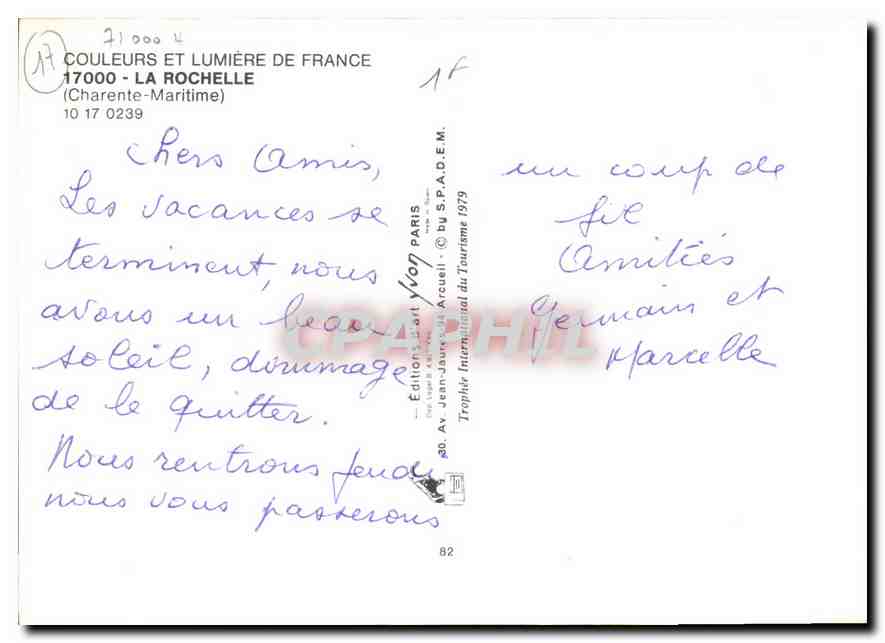 71000 4
17
COULEURS ET LUMIÈRE DE FRANCE
17000 - LA ROCHELLE
(Charente-Maritime)
10 17 0239
1F
Chers Amis,
Les vacances se
terminent, nous
avons un beau
soleil, dommage
de le quitter.
Nous rentrons jeudi
nous vous passerons
un coup de
fil
Amitiés
Germain et
Marcelle
— Éditions d'art Yvon PARIS
30, Av. Jean-Jaurès 94 Arcueil - © by S.P.A.D.E.M.
Trophée International du Tourisme 1979
82
CPAPHIL